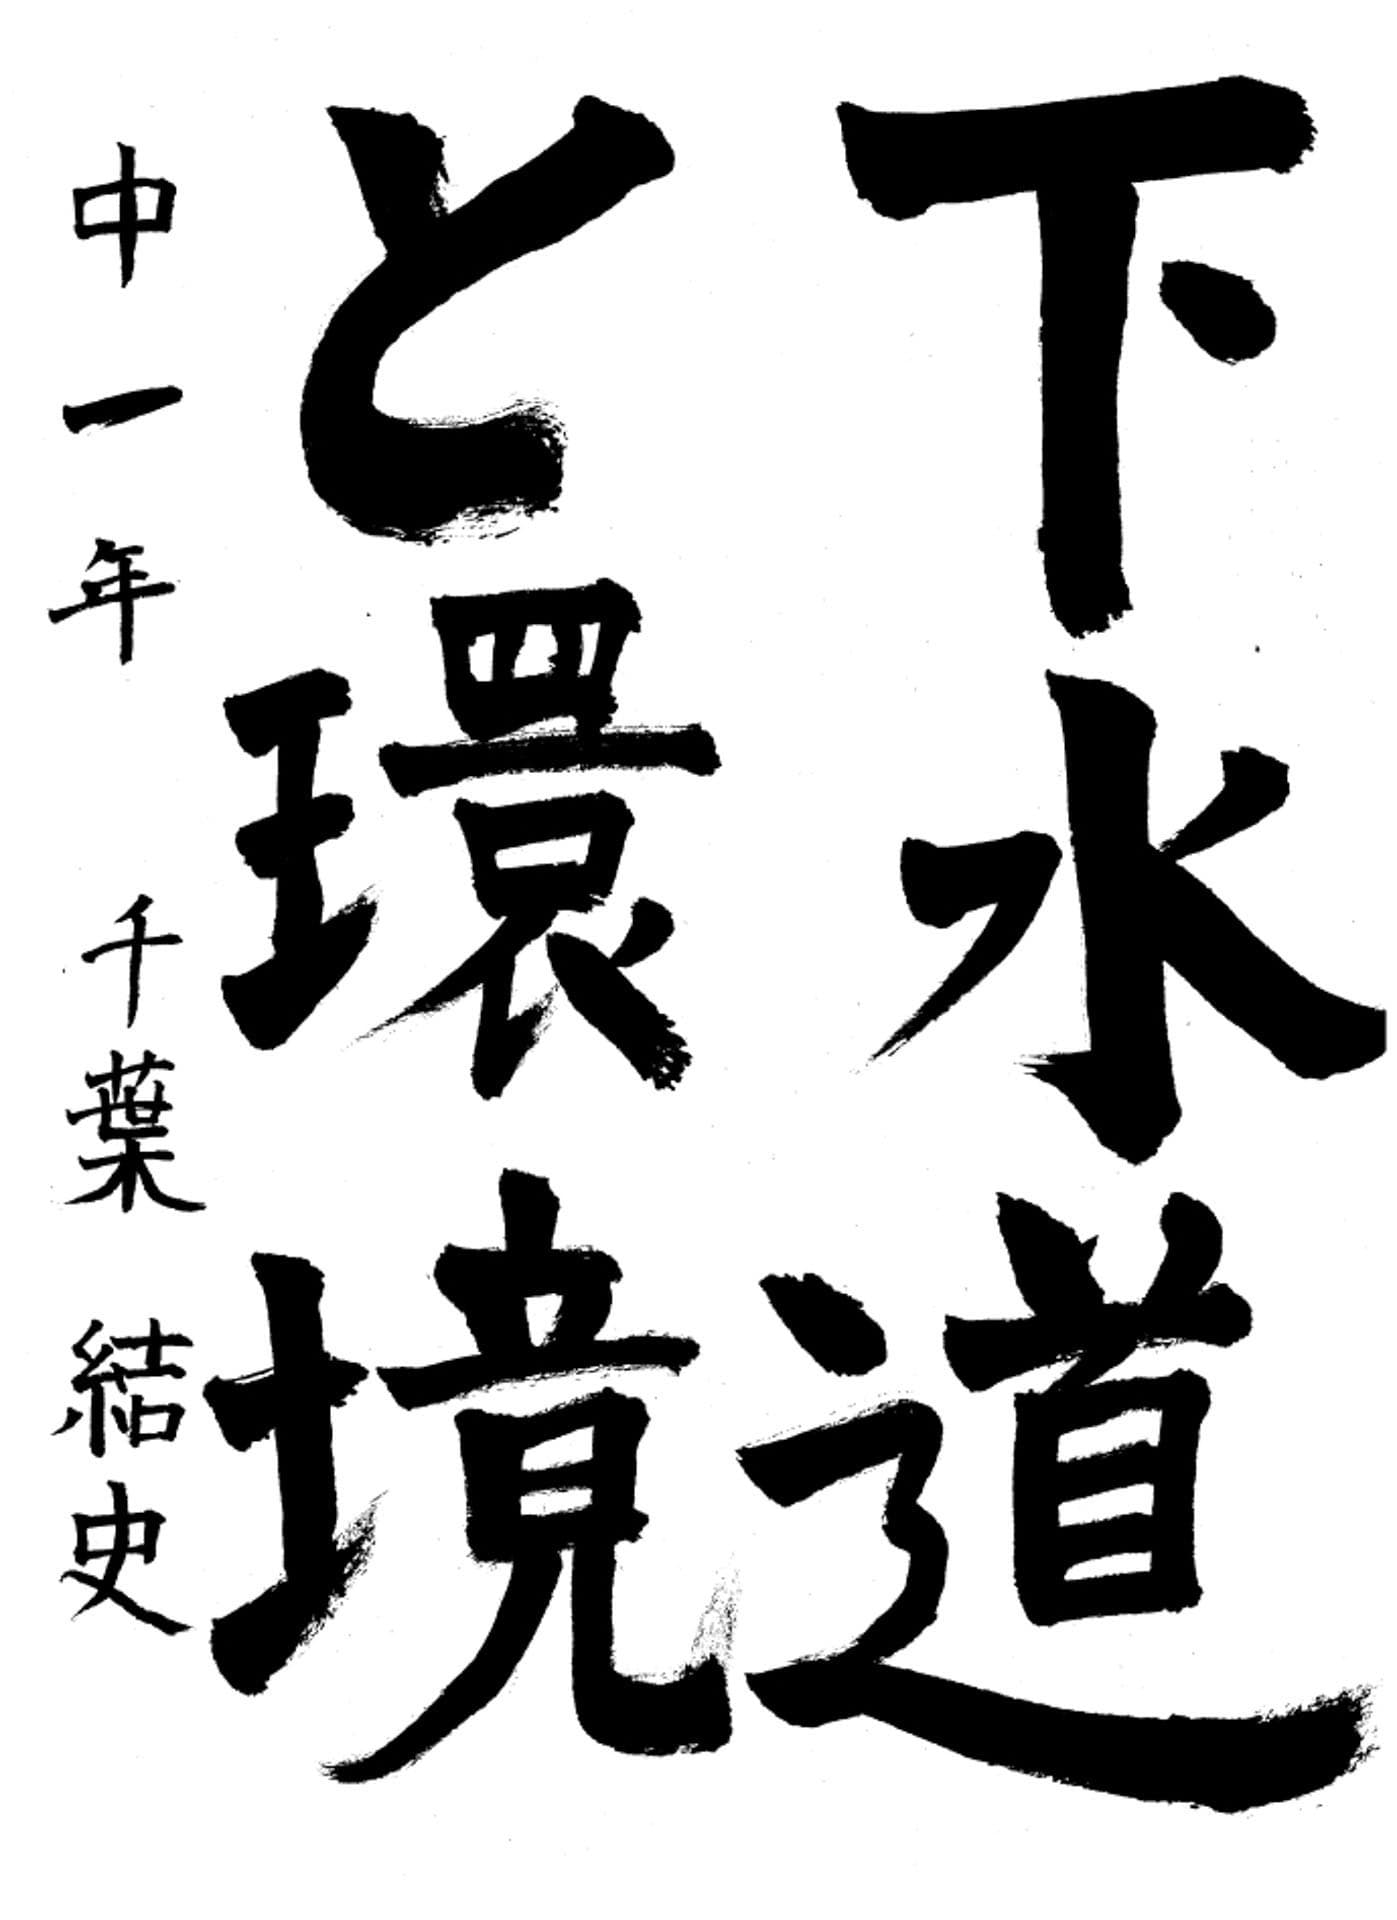 下水道
と環境
中一年 千葉結史